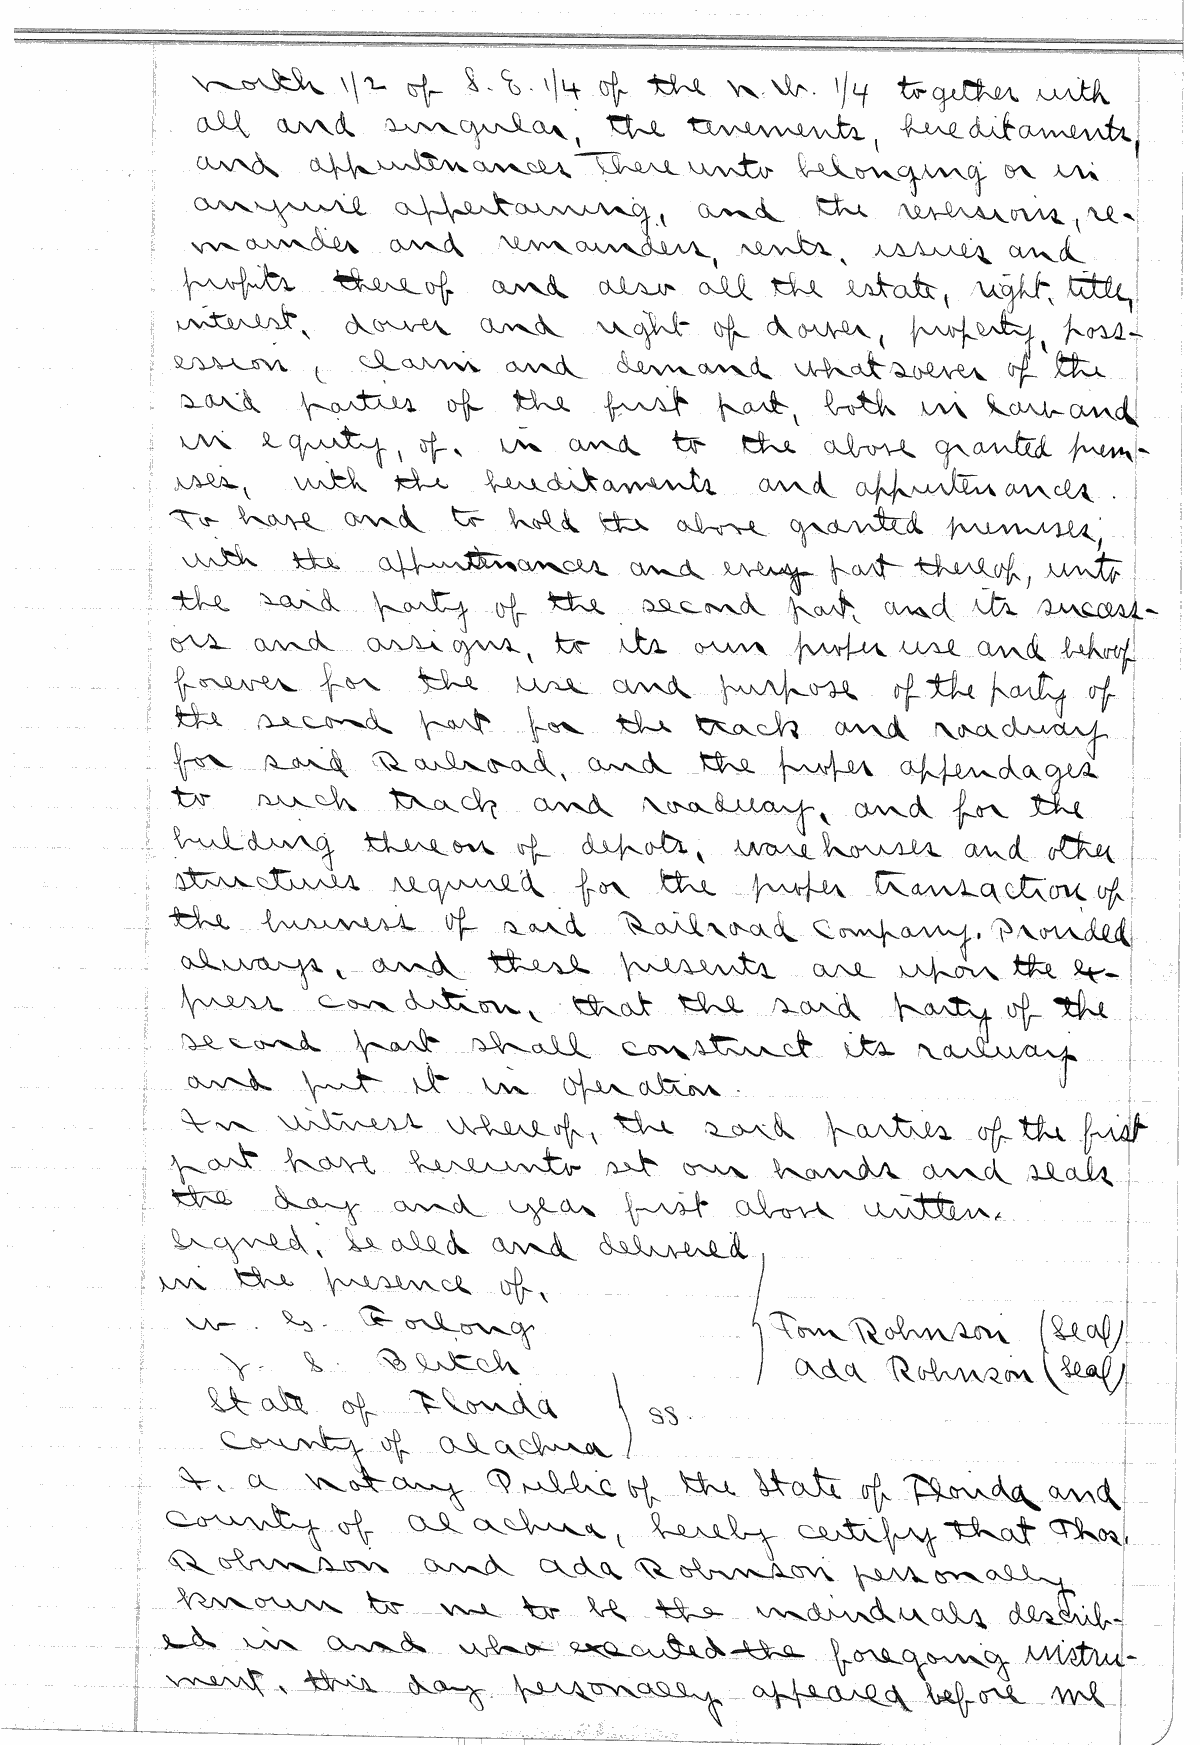 North 1/2 of S. E. 1/4 of the N. W. 1/4 together with
all and singular, the tenements, hereditaments,
and appurtenances thereunto belonging or in
anywise appertaining, and the reversions, re-
mainder and remainders, rents, issues and
profits thereof and also all the estate, right, title,
interest, dower and right of dower, property, poss-
ession, claim and demand whatsoever of the
said parties of the first part, both in law and
in equity, of, in and to the above granted prem-
ises, with the hereditaments and appurtenances.
To have and to hold the above granted premises,
with the appurtenances and every part thereof, unto
the said party of the second part, and its success-
ors and assigns, to its own proper use and behoof
forever for the use and purpose of the party of
the second part for the track and roadway
for said Railroad, and the proper appendages
to such track and roadway, and for the
building thereon of depots, warehouses and other
structures required for the proper transaction of
the business of said Railroad Company. Provided
always, and these presents are upon the ex-
press condition, that the said party of the
second part shall construct its railway
and put it in operation.
In witness whereof, the said parties of the first
part have hereunto set our hands and seals
the day and year first above written.
Signed, Sealed and delivered
in the presence of,
W. G. Forlong
Tom Robinson (Seal)
J. S. Blitch
Ada Robinson (Seal)
State of Florida
SS.
County of Alachua
I, a Notary Public of the State of Florida and
County of Alachua, hereby certify that Thos.
Robinson and Ada Robinson personally
known to me to be the individuals describ-
ed in and who executed the foregoing instru-
ment, this day personally appeared before me